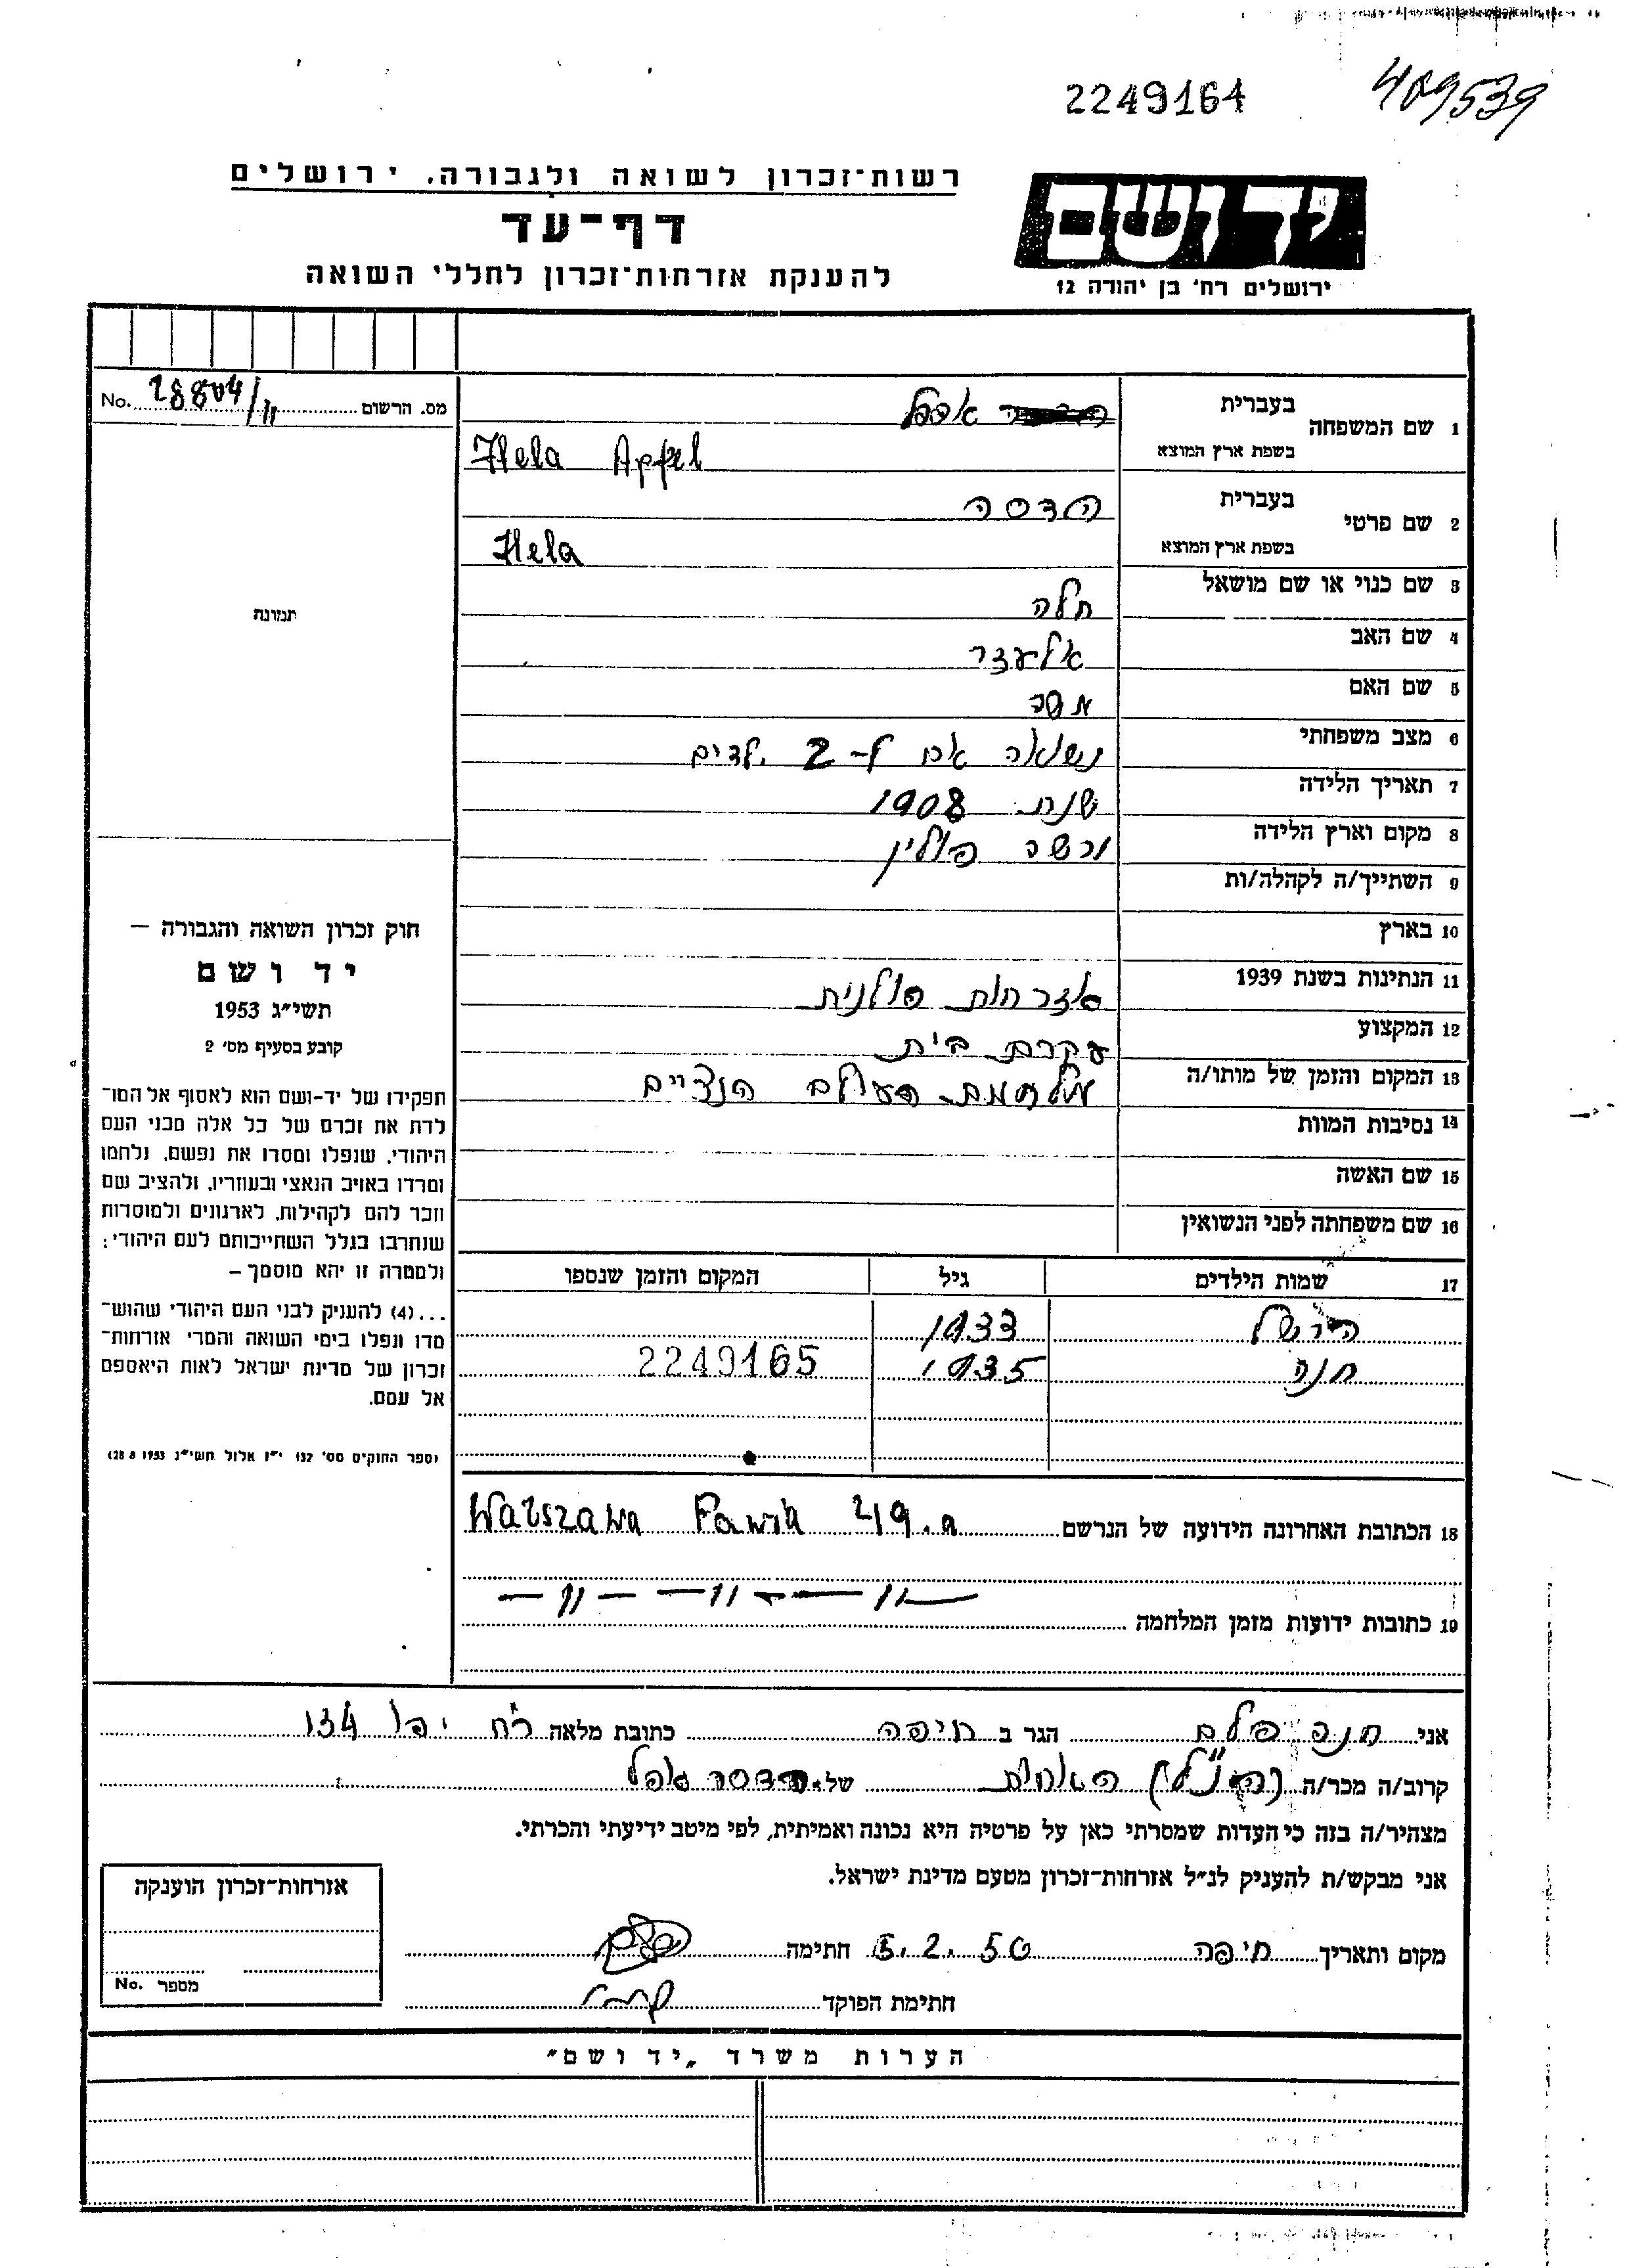 2249164
409539
יד ושם
ירושלים רח' בן יהודה 12
רשות־זכרון לשואה ולגבורה, ירושלים
דף־עד
להענקת אזרחות־זכרון לחללי השואה
מס. הרשום 28804/11 No.
1 שם המשפחה בעברית אפפל
בשפת ארץ המוצא Hela Apfel
2 שם פרטי בעברית הדסה
בשפת ארץ המוצא Hela
3 שם כנוי או שם מושאל חלה
4 שם האב אלעזר
5 שם האם
6 מצב משפחתי נשואה אם ל-2 ילדים
7 תאריך הלידה שנת 1908
8 מקום וארץ הלידה ורשה פולין
9 השתייך/ה לקהלה/ות
10 בארץ
11 הנתינות בשנת 1939 אזרחות פולנית
12 המקצוע עקרת בית
13 המקום והזמן של מותו/ה מלחמת העולם הנציים
14 נסיבות המוות
15 שם האשה
16 שם משפחתה לפני הנשואין
17 שמות הילדים גיל המקום והזמן שנספו
הירשל 1933
חנה 1935 2249165
תמונה
חוק זכרון השואה והגבורה –
יד ושם
תשי"ג 1953
קובע בסעיף מס' 2
תפקידו של יד-ושם הוא לאסוף אל המו־
לדת את זכרם של כל אלה מבני העם
היהודי, שנפלו ומסרו את נפשם, נלחמו
ומרדו באויב הנאצי ובעוזריו, ולהציב שם
וזכר להם לקהילות, לארגונים ולמוסדות
שנחרבו בגלל השתייכותם לעם היהודי:
ולמטרה זו יהא מוסמך –
...(4) להעניק לבני העם היהודי שהוש־
מדו ונפלו בימי השואה והמרי אזרחות־
זכרון של מדינת ישראל לאות היאספם
אל עמם.
(ספר החוקים מס' 132 י"ז אלול תשי"ג 28.8.1953)
18 הכתובת האחרונה הידועה של הנרשם Warszawa Pawia 49.a
19 כתובות ידועות מזמן המלחמה –״– –״– –״–
אני חנה פלם הגר ב חיפה כתובת מלאה רח יפו 134
קרוב/ה מכר/ה האחות של הדסה אפפל
מצהיר/ה בזה כי העדות שמסרתי כאן על פרטיה היא נכונה ואמיתית, לפי מיטב ידיעתי והכרתי.
אני מבקש/ת להעניק לנ"ל אזרחות־זכרון מטעם מדינת ישראל.
מקום ותאריך חיפה 5.2.56 חתימה
חתימת הפוקד
אזרחות־זכרון הוענקה
מספר No.
הערות משרד „יד ושם"